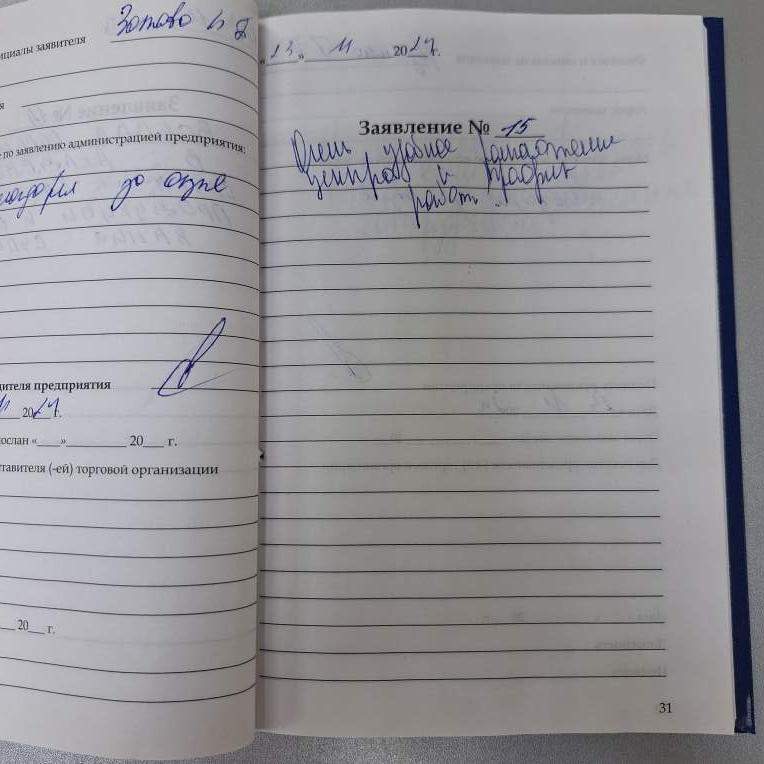 Зотово
ициалы заявителя
я
по заявлению администрацией предприятия:
дителя предприятия
11 2024г.
послан «___»________ 20___ г.
тавителя (-ей) торговой организации
20___ г.
«23» 11 2024г.
Заявление № 15
Очень удобное расположение
центров и график
работы.
31